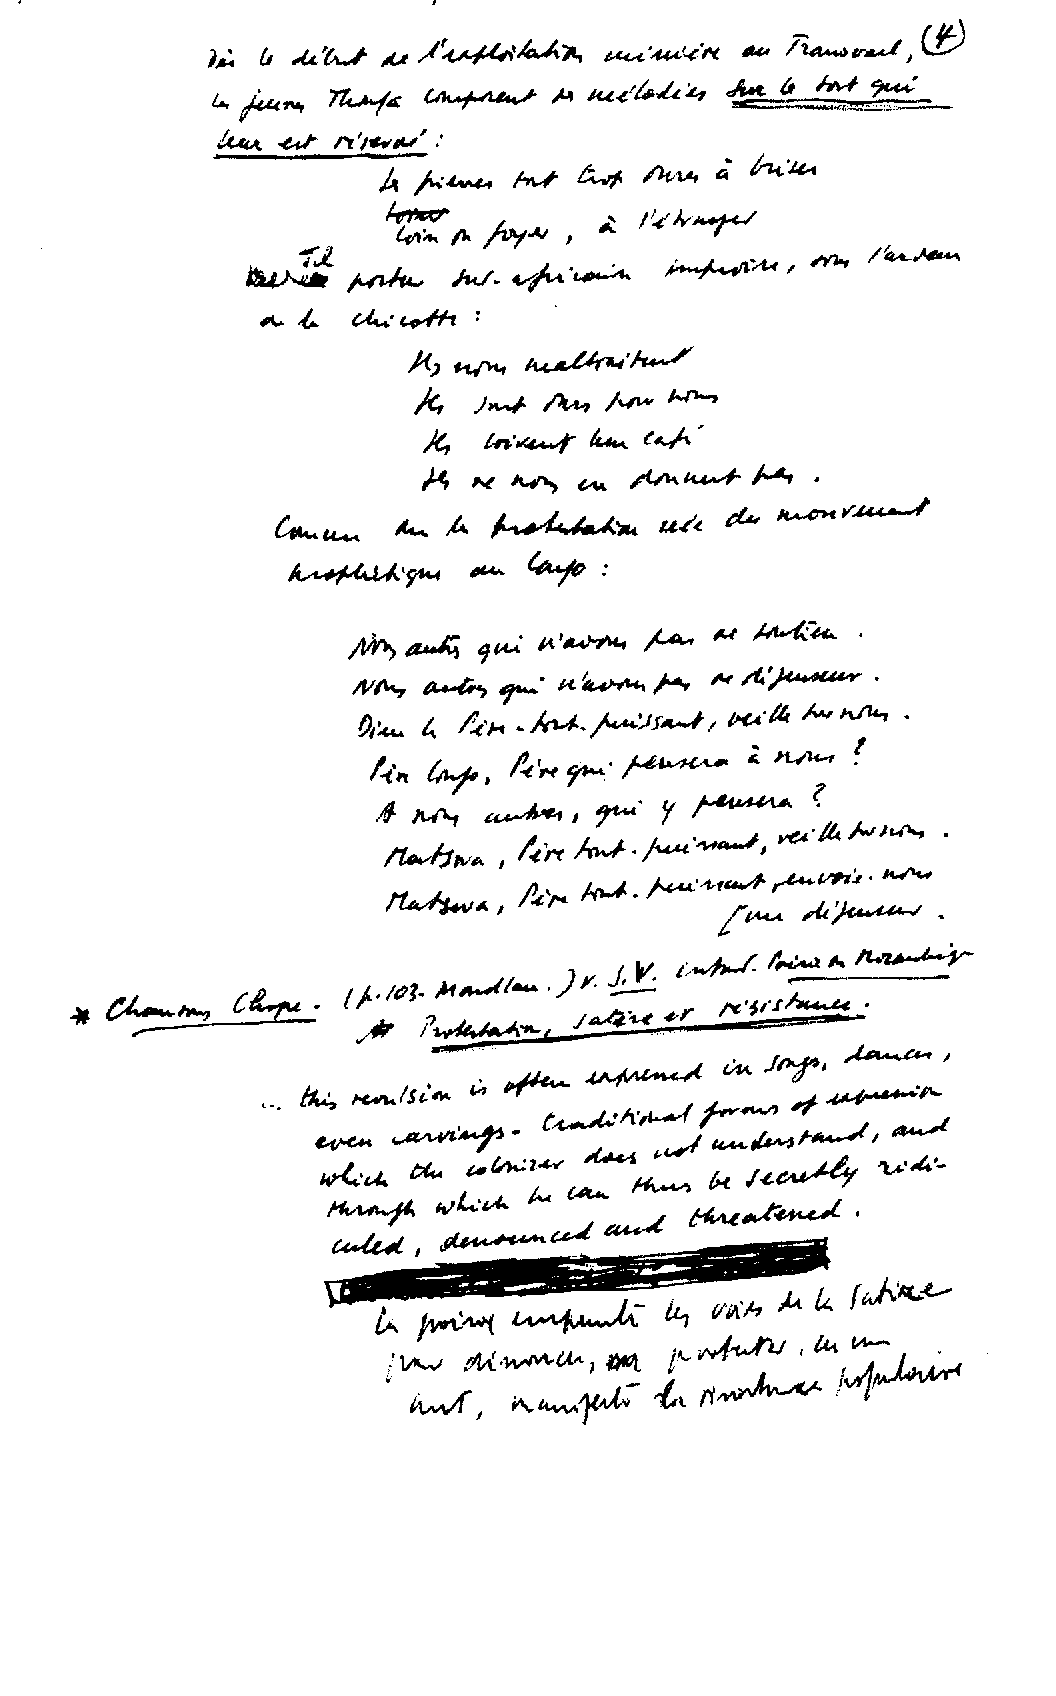 (4)
Dès le début de l'exploitation minière au Transvaal,
les jeunes Thonga composent des mélodies sur le sort qui
leur est réservé :
Les pierres sont trop dures à briser
Loin du foyer, à l'étranger
Tel porteur sud-africain improvise, sous l'ardeur
de la chicotte :
Ils nous maltraitent
Ils sont durs pour nous
Ils boivent leur café
Ils ne nous en donnent pas.
Comme dans la protestation née du mouvement
prophétique au Congo :
Nous autres qui n'avons pas de soutien.
Nous autres qui n'avons pas de défenseur.
Dieu le Père-tout-puissant, veille sur nous.
Père Congo, Père qui pensera à nous ?
A nous autres, qui y pensera ?
Matswa, Père tout-puissant, veille sur nous.
Matswa, Père tout-puissant, envoie-nous
[un défenseur.
* Chansons Chope. (p. 103. Mondlane.) v. S.V. Poésie du Mozambique
Protestation, satire et résistance.
... this revulsion is often expressed in songs, dances,
even carvings - traditional forms of expression
which the colonizer does not understand, and
through which he can thus be secretly ridi-
culed, denounced and threatened.
La poésie emprunte les voies de la satire
pour dénoncer, protester, en un
mot, manifeste la résistance populaire